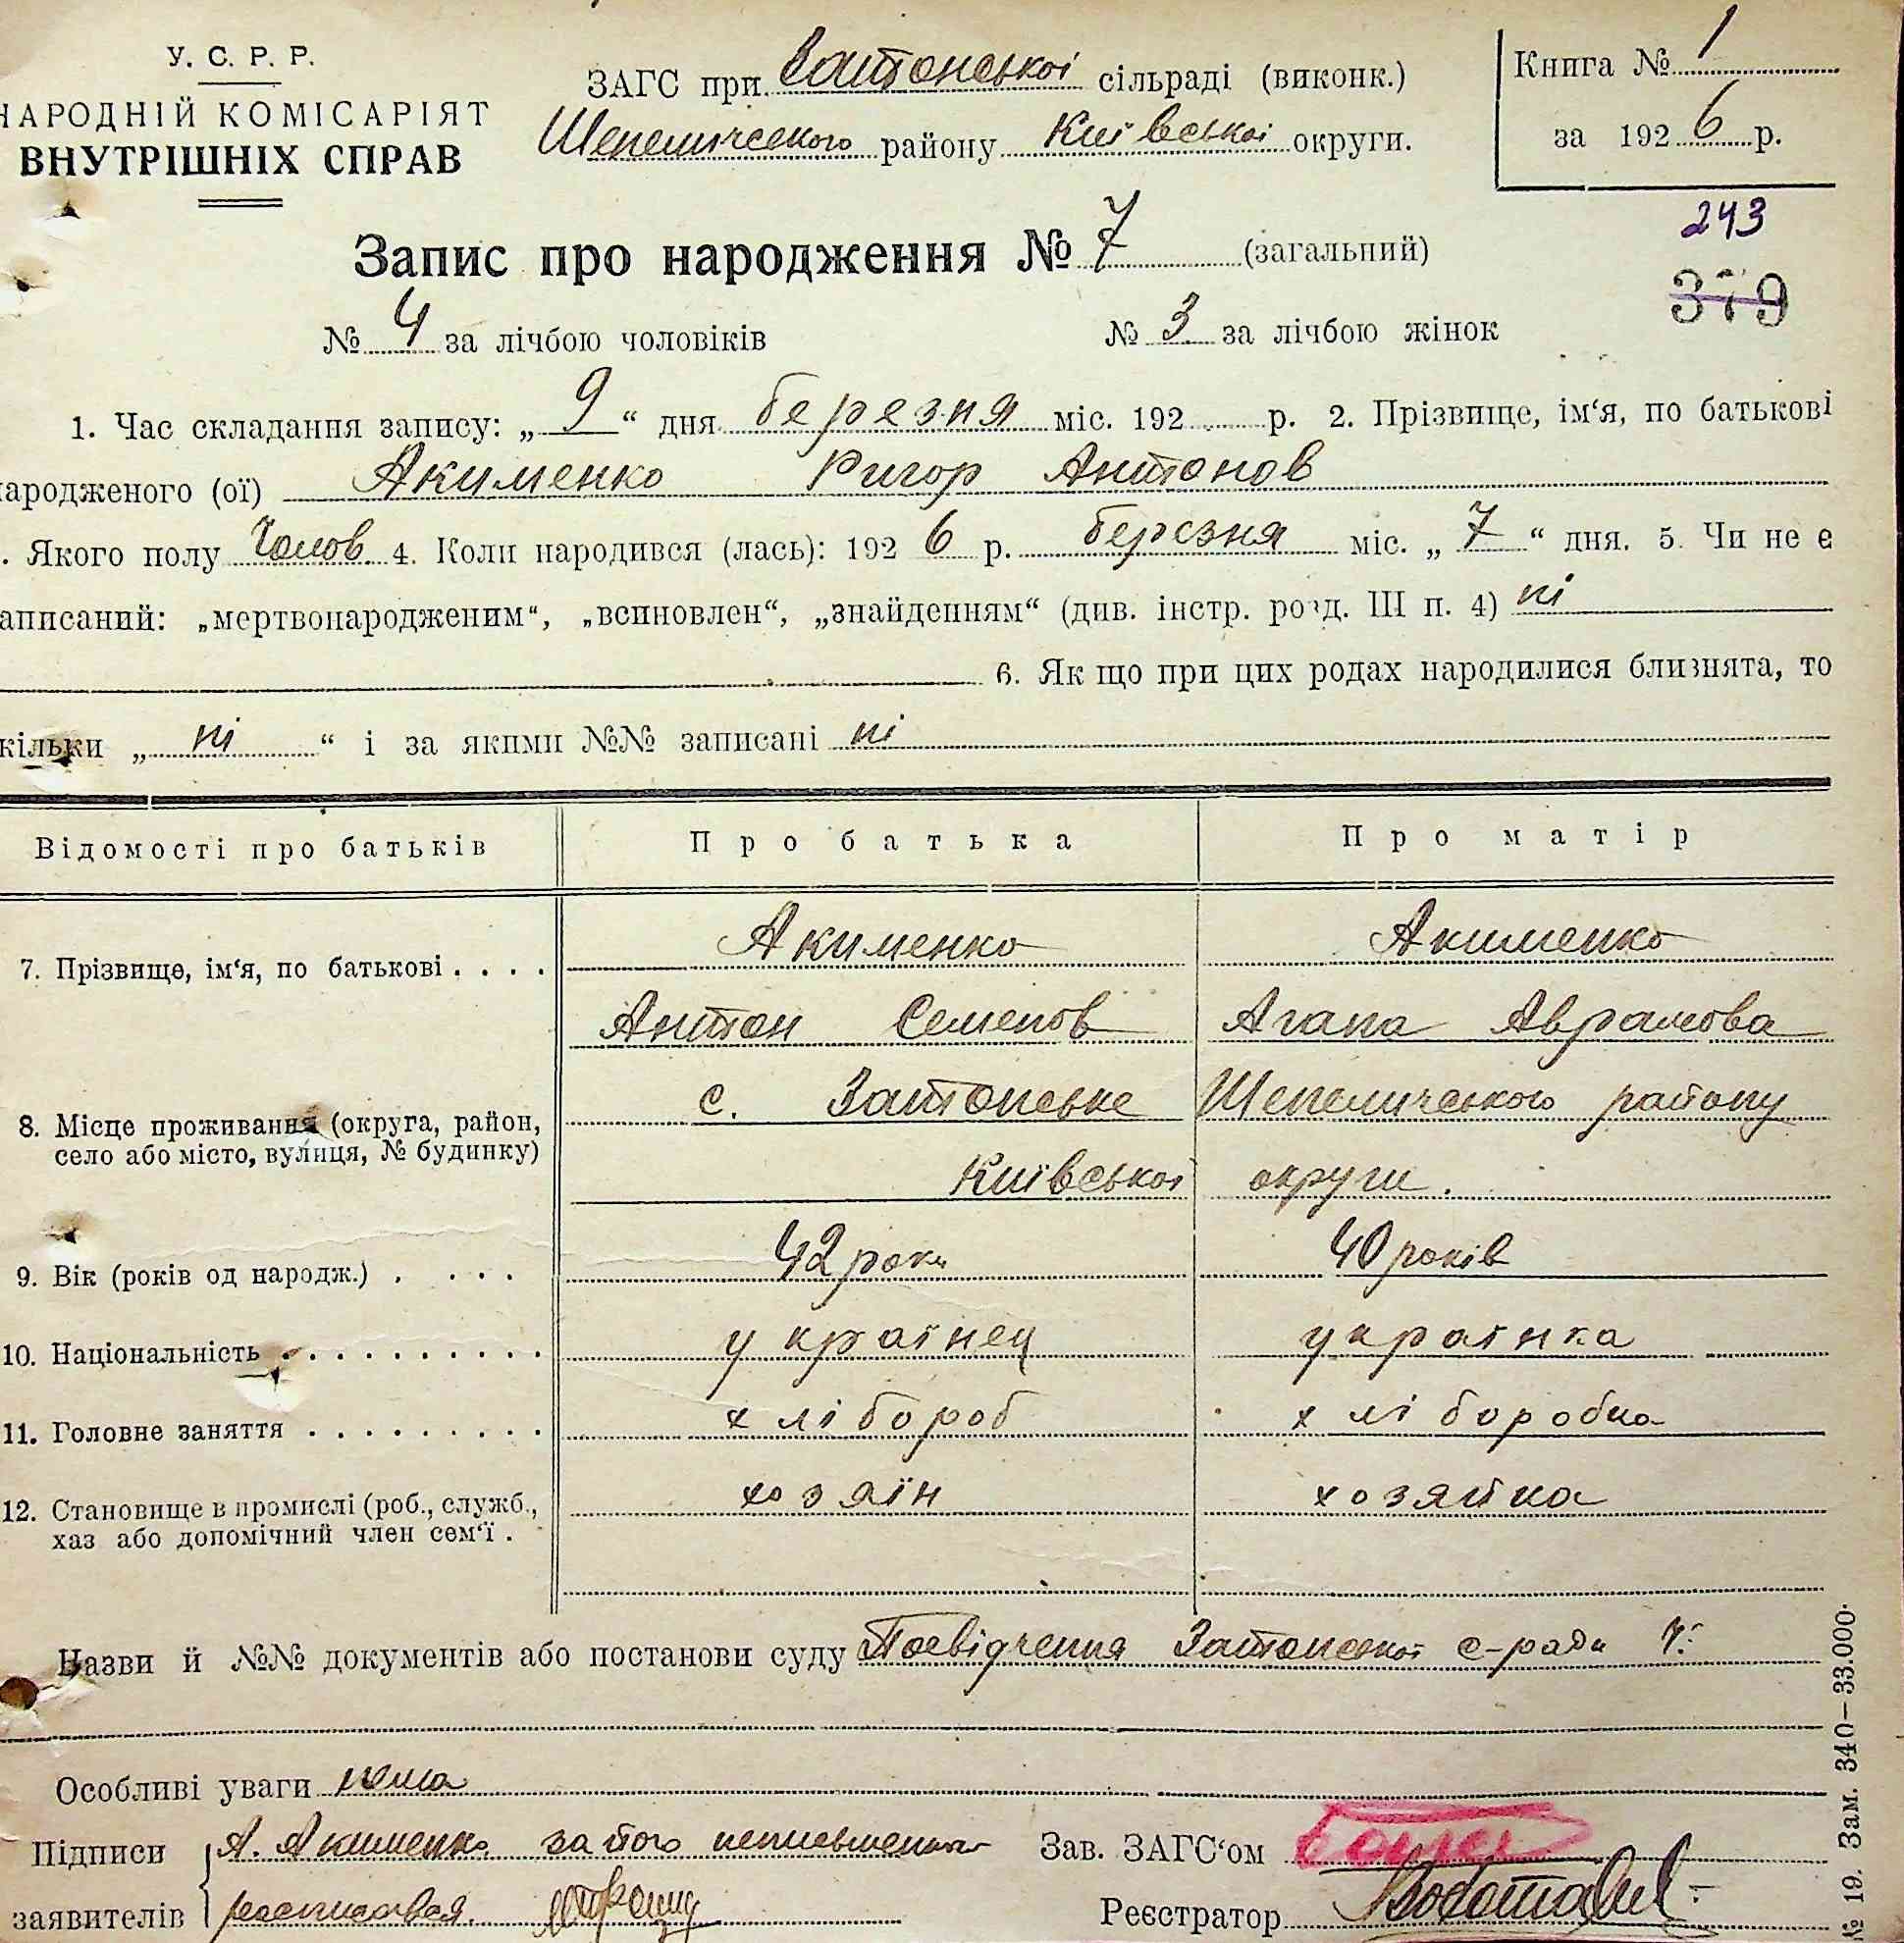 У. С. Р. Р.
НАРОДНІЙ КОМІСАРІЯТ
ВНУТРІШНІХ СПРАВ
ЗАГС при Затонської сільраді (виконк.)
Шепелического району Київської округи.
Книга № 1
за 1926 р.
243
379
Запис про народження № 7 (загальний)
№ 4 за лічбою чоловіків № 3 за лічбою жінок
1. Час складання запису: „ 9 “ дня березня міс. 192 р. 2. Прізвище, ім‘я, по батькові
народженого (ої) Акименко Ригор Антонов
. Якого полу Чолов. 4. Коли народився (лась): 192 6 р. березня міс. „ 7 “ дня. 5. Чи не є
аписаний: „мертвонародженим“, „всиновлен“, „знайденням“ (див. інстр. розд. III п. 4) ні
6. Як що при цих родах народилися близнята, то
кільки „ ні “ і за якими №№ записані ні
Відомості про батьків Про батька Про матір
7. Прізвище, ім‘я, по батькові . . . . Акименко Акименко
Антон Семенов Агапа Аврамова
8. Місце проживання (округа, район, село або місто, вулиця, № будинку) с. Затонське Шепелического району
Київської округи.
9. Вік (років од народж.) . . . . 42 роки 40 років
10. Національність . . . . . . . . . . українец українка
11. Головне заняття . . . . . . . . . хлібороб хліборобка
12. Становище в промислі (роб., служб., хаз або допомічний член сем‘ї . хозяїн хозяйка
Назви й №№ документів або постанови суду Посвідчення Затонської с-ради
Особливі уваги нема
Підписи заявителів А. Акименко за його неписьменного
росписався
Зав. ЗАГС‘ом
Реєстратор
№ 19. Зам. 340—33.000.